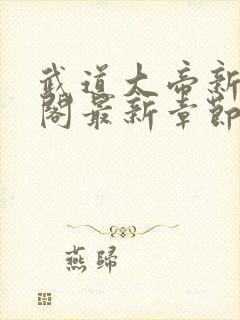 武道大帝新
阁最新章節
燕歸